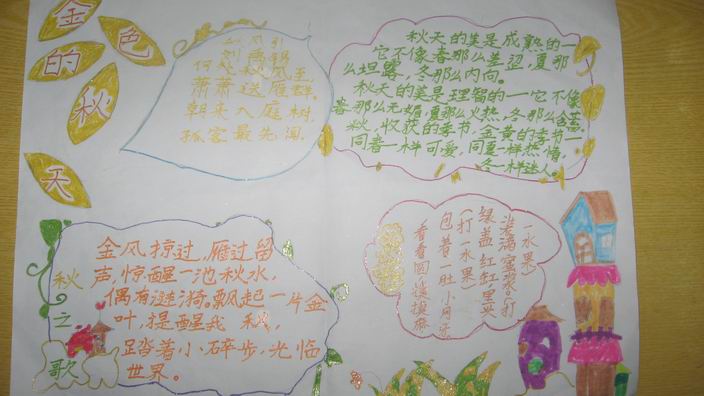 金色的秋天
秋风引
刘禹锡
何处秋风至,
萧萧送雁群。
朝来入庭树,
孤客最先闻。
秋天的美是成熟的一
它不像春那么羞涩,夏那
么坦露,冬那么内向。
秋天的美是理智的一它不像
春那么妩媚,夏那么火热,冬那么含蓄。
秋,收获的季节,金黄的季节一
同春一样可爱,同夏一样热情,
冬一样迷人。
秋之歌
金风掠过,雁过留
声,惊醒一池秋水,
偶有涟漪。飘起一片金
叶,提醒我 秋,
踏着小碎步,光临
世界。
看看圆摸摸麻
包着一肚小月牙
(打一水果)
绿盖红缸里头
装满蜜浆(打
一水果)